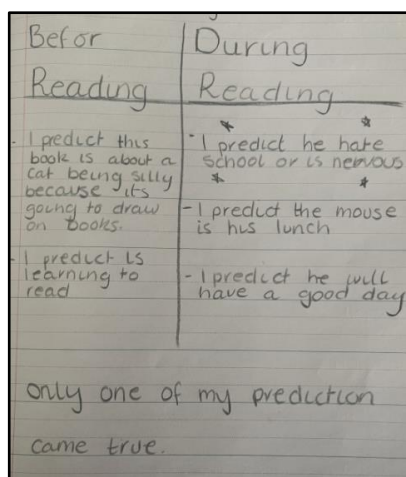 Befor
Reading
- I predict this
book is about a
cat being silly
because its
going to draw
on books.
- I predict is
learning to
read
During
Reading
- I predict he hate
school or is nervous
- I predict the mouse
is his lunch
- I predict he will
have a good day
only one of my prediction
came true.